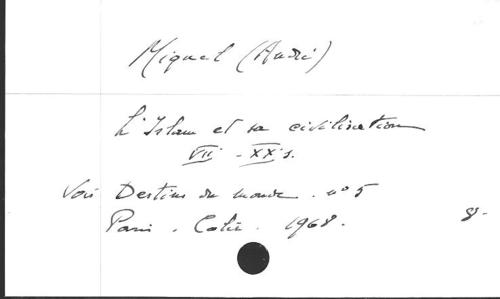 Miquel (André)
L'Islam et sa civilisation
VII - XXs.
Voir Destins du monde . n°5
Paris . Colin . 1968.
8-